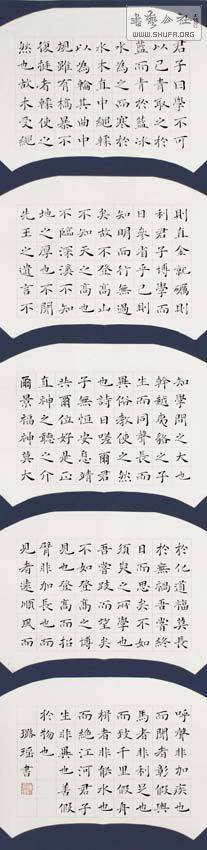 書藝公社
WWW.SHUFA.ORG
君子曰學不可
以已青取之於
藍而青於藍冰
水為之而寒於
水木直中繩輮
以為輪其曲中
規雖有槁暴不
復挺者輮使之
然也故木受繩
則直金就礪則
利君子博學而
日參省乎己則
知明而行無過
矣故不登高山
不知天之高也
不臨深溪不知
地之厚也不聞
先王之遺言不
知學問之大也
幹越夷貉之子
生而同聲長而
異俗教使之然
也詩曰嗟爾君
子無恒安息靖
共爾位好是正
直神之聽之介
爾景福神莫大
於化道福莫長
於無禍吾嘗終
日而思矣不如
須臾之所學也
吾嘗跂而望矣
不如登高之博
見也登高而招
臂非加長也而
見者遠順風而
呼聲非加疾也
而聞者彰假輿
馬者非利足也
而致千里假舟
楫者非能水也
而絕江河君子
生非異也善假
於物也
璐瑶書